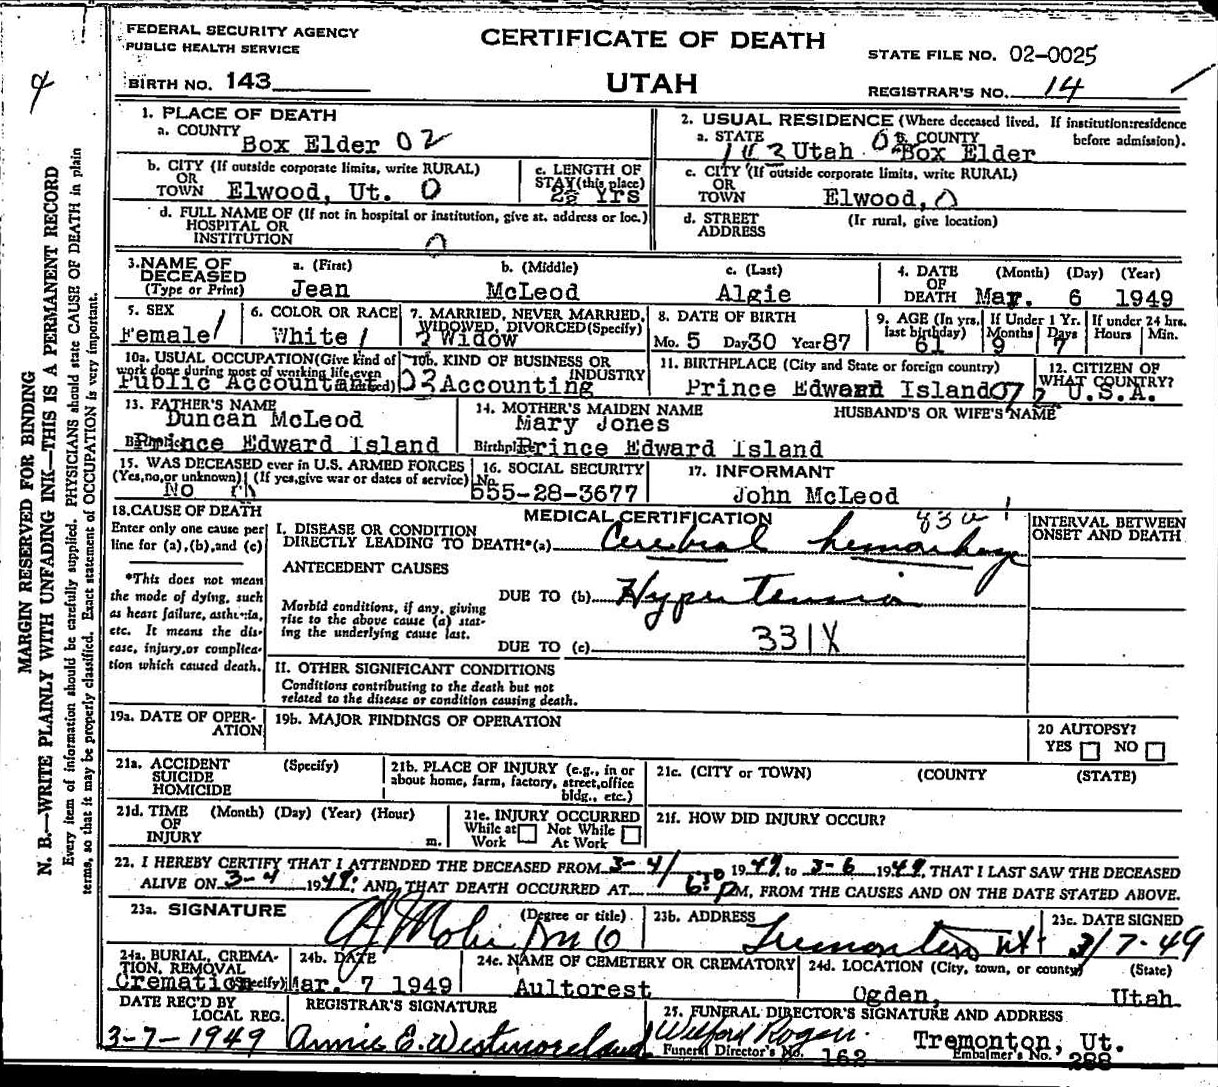 FEDERAL SECURITY AGENCY
PUBLIC HEALTH SERVICE
CERTIFICATE OF DEATH
STATE FILE NO. 02-0025
BIRTH NO. 143
UTAH
REGISTRAR'S NO. 14
1. PLACE OF DEATH
a. COUNTY
Box Elder 02
2. USUAL RESIDENCE (Where deceased lived. If institution:residence before admission).
a. STATE b. COUNTY
143 Utah Box Elder
b. CITY (If outside corporate limits, write RURAL)
OR
TOWN Elwood, Ut. 0
c. LENGTH OF
STAY (this place)
Yrs
c. CITY (If outside corporate limits, write RURAL)
OR
TOWN Elwood, 0
d. FULL NAME OF (If not in hospital or institution, give st. address or loc.)
HOSPITAL OR
INSTITUTION 0
d. STREET (If rural, give location)
ADDRESS
3. NAME OF DECEASED (Type or Print)
a. (First) b. (Middle) c. (Last)
Jean McLeod Algie
4. DATE OF DEATH (Month) (Day) (Year)
Mar. 6 1949
5. SEX
Female 1
6. COLOR OR RACE
White 1
7. MARRIED, NEVER MARRIED,
WIDOWED, DIVORCED (Specify)
2 Widow
8. DATE OF BIRTH
Mo. 5 Day 30 Year 87
9. AGE (In yrs. last birthday) If Under 1 Yr. Months Days If under 24 hrs. Hours Min.
61 9 7
10a. USUAL OCCUPATION (Give kind of work done during most of working life, even
Public Accountant
10b. KIND OF BUSINESS OR INDUSTRY
03 Accounting
11. BIRTHPLACE (City and State or foreign country)
Prince Edward Island 07
12. CITIZEN OF WHAT COUNTRY?
2 U.S.A.
13. FATHER'S NAME
Duncan McLeod
Prince Edward Island
14. MOTHER'S MAIDEN NAME
Mary Jones
Birthpl. Prince Edward Island
HUSBAND'S OR WIFE'S NAME
15. WAS DECEASED ever in U.S. ARMED FORCES
(Yes,no,or unknown) (If yes,give war or dates of service)
No
16. SOCIAL SECURITY No.
555-28-3677
17. INFORMANT
John McLeod
18. CAUSE OF DEATH
Enter only one cause per line for (a),(b),and (c)
*This does not mean the mode of dying, such as heart failure, asthenia, etc. It means the disease, injury,or complication which caused death.
MEDICAL CERTIFICATION
INTERVAL BETWEEN ONSET AND DEATH
I. DISEASE OR CONDITION
DIRECTLY LEADING TO DEATH*(a) Cerebral hemorrhage
ANTECEDENT CAUSES
Morbid conditions, if any, giving rise to the above cause (a) stating the underlying cause last.
DUE TO (b) Hypertension
DUE TO (c) 331X
II. OTHER SIGNIFICANT CONDITIONS
Conditions contributing to the death but not
related to the disease or condition causing death.
19a. DATE OF OPERATION
19b. MAJOR FINDINGS OF OPERATION
20 AUTOPSY?
YES NO
21a. ACCIDENT (Specify)
SUICIDE
HOMICIDE
21b. PLACE OF INJURY (e.g., in or about home, farm, factory, street,office bldg., etc.)
21c. (CITY or TOWN) (COUNTY) (STATE)
21d. TIME (Month) (Day) (Year) (Hour)
OF
INJURY m.
21e. INJURY OCCURRED
While at Work Not While At Work
21f. HOW DID INJURY OCCUR?
22. I HEREBY CERTIFY THAT I ATTENDED THE DECEASED FROM 3-4 1949, to 3-6 1949, THAT I LAST SAW THE DECEASED
ALIVE ON 3-4 1949, AND THAT DEATH OCCURRED AT 6:30 PM, FROM THE CAUSES AND ON THE DATE STATED ABOVE.
23a. SIGNATURE (Degree or title)
23b. ADDRESS
Tremonton Ut.
23c. DATE SIGNED
3/7-49
24a. BURIAL, CREMATION, REMOVAL (Specify)
Cremation
24b. DATE
Mar. 7 1949
24c. NAME OF CEMETERY OR CREMATORY
Aultorest
24d. LOCATION (City, town, or county) (State)
Ogden, Utah
DATE REC'D BY LOCAL REG.
3-7-1949
REGISTRAR'S SIGNATURE
Annie E. Westmoreland
25. FUNERAL DIRECTOR'S SIGNATURE AND ADDRESS
Tremonton, Ut.
Funeral Director's No. 162 Embalmer's No. 288
MARGIN RESERVED FOR BINDING
N. B.—WRITE PLAINLY WITH UNFADING INK—THIS IS A PERMANENT RECORD
Every item of information should be carefully supplied. PHYSICIANS should state CAUSE OF DEATH in plain
terms, so that it may be properly classified. Exact statement of OCCUPATION is very important.